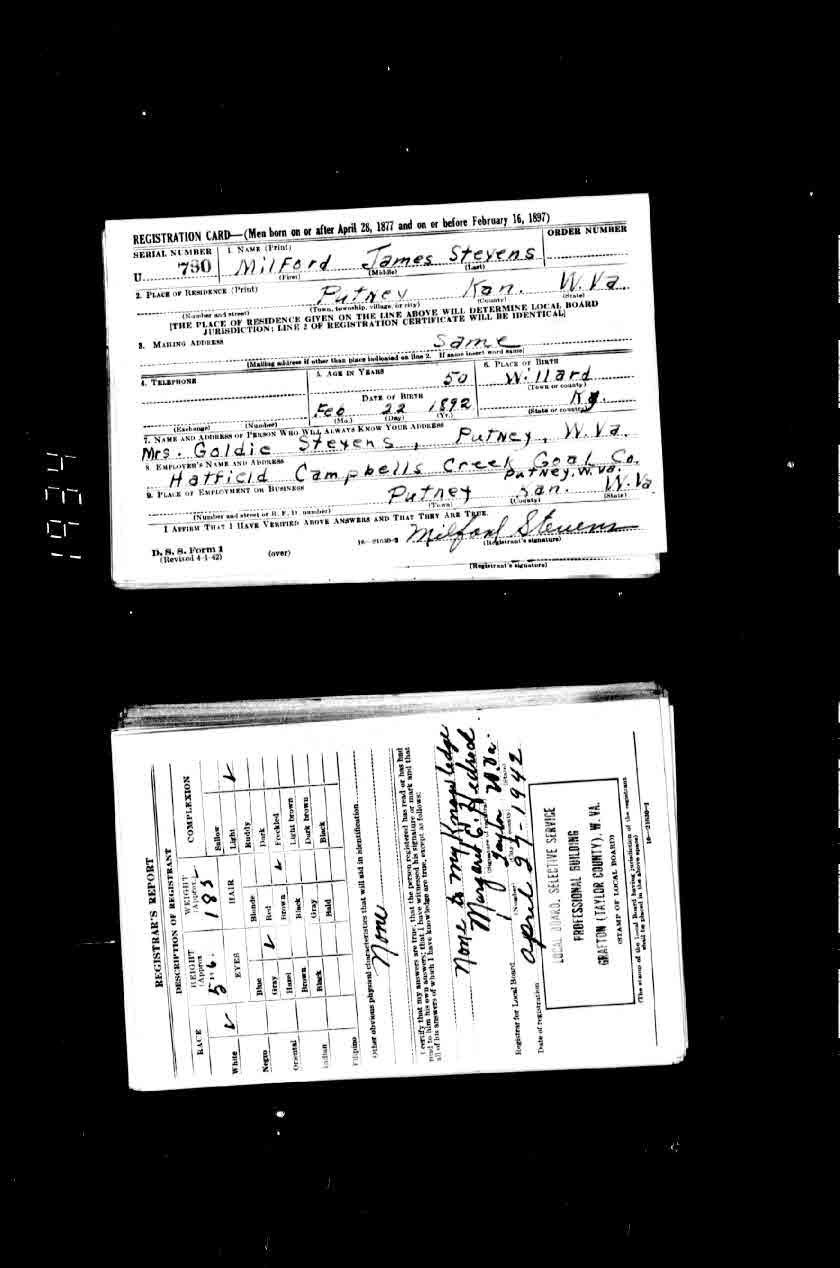 REGISTRATION CARD—(Men born on or after April 28, 1877 and on or before February 16, 1897)
SERIAL NUMBER
1. NAME (Print)
ORDER NUMBER
U 780
Milford James Stevens
(First) (Middle) (Last)
2. PLACE OF RESIDENCE (Print)
Putney Kan. W.Va.
(Number and street) (Town, township, village, or city) (County) (State)
[THE PLACE OF RESIDENCE GIVEN ON THE LINE ABOVE WILL DETERMINE LOCAL BOARD
JURISDICTION; LINE 2 OF REGISTRATION CERTIFICATE WILL BE IDENTICAL]
3. MAILING ADDRESS
Same
[Mailing address if other than place indicated on line 2. If same insert word same]
4. TELEPHONE
5. AGE IN YEARS
50
6. PLACE OF BIRTH
Willard
(Town or county)
DATE OF BIRTH
Feb 22 1892
Ky.
(Exchange) (Number) (Mo.) (Day) (Yr.) (State or country)
7. NAME AND ADDRESS OF PERSON WHO WILL ALWAYS KNOW YOUR ADDRESS
Mrs. Goldie Stevens, Putney, W.Va.
8. EMPLOYER'S NAME AND ADDRESS
Hatfield Campbells Creek Goal Co.
Putney, W.Va.
9. PLACE OF EMPLOYMENT OR BUSINESS
Putney Kan. W.Va
(Number and street or R. F. D. number) (Town) (County) (State)
I AFFIRM THAT I HAVE VERIFIED ABOVE ANSWERS AND THAT THEY ARE TRUE.
Milford Stevens
D. S. S. Form 1
(Revised 4-1-42)
(over)
16—21630-2
(Registrant's signature)
(Registrant's signature)
1934
REGISTRAR'S REPORT
DESCRIPTION OF REGISTRANT
RACE
HEIGHT
(Approx.)
WEIGHT
(Approx.)
COMPLEXION
5' 6"
185
White
EYES
HAIR
Sallow
Light
Ruddy
Negro
Blue
Blonde
Dark
Gray
Red
Freckled
Oriental
Hazel
Brown
Light brown
Brown
Black
Dark brown
Indian
Black
Gray
Black
Bald
Filipino
Other obvious physical characteristics that will aid in identification
None
I certify that my answers are true; that the person registered has read or has had
read to him his own answers; that I have witnessed his signature or mark and that
all of his answers of which I have knowledge are true, except as follows:
None to my Knowledge
Registrar for Local Board
1 Taylor W.Va.
(Number)
Date of registration
April 27-1942
LOCAL BOARD, SELECTIVE SERVICE
PROFESSIONAL BUILDING
GRAFTON (TAYLOR COUNTY), W. VA.
(STAMP OF LOCAL BOARD)
(The stamp of the Local Board having jurisdiction of the registrant
shall be placed in the above space)
16—21630-1